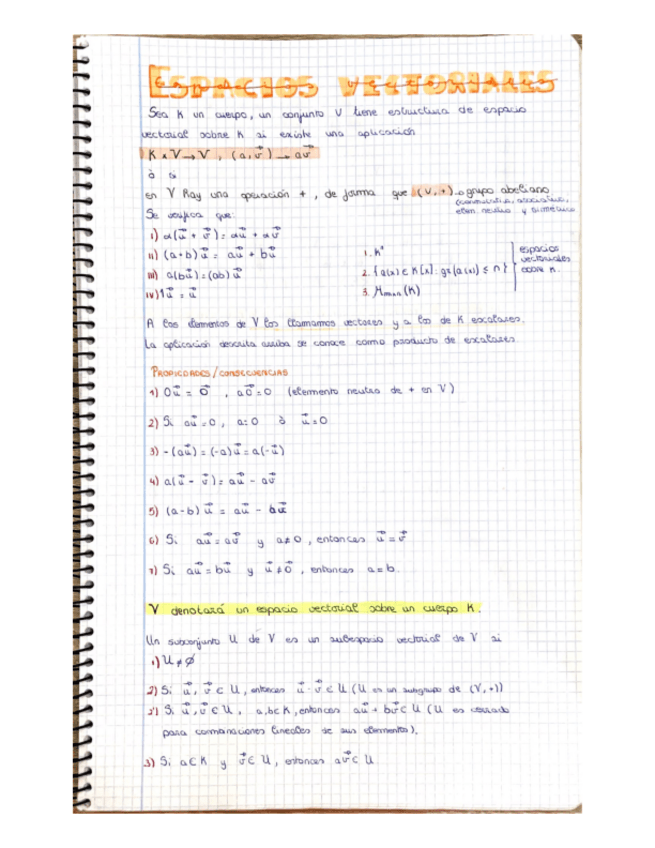 ESPACIOS VECTORIALES
Sea K un cuerpo, un conjunto V tiene estructura de espacio
vectorial sobre K si existe una aplicación
K x V → V , (a, v⃗) → av⃗
ò
en V hay una operación + , de forma que (V, +) → grupo abeliano
(conmutativa, asociativa,
elem. neutro y simétrico
Se verifica que:
i) a(u⃗ + v⃗) = au⃗ + av⃗
ii) (a+b)u⃗ = au⃗ + bu⃗
iii) a(bu⃗) = (ab)u⃗
iv) 1u⃗ = u⃗
1. Kⁿ
2. {a(x) ∈ K[x] : gr(a(x)) ≤ n}
3. Mmxn (K)
espacios
vectoriales
sobre K.
A los elementos de V los llamamos vectores y a los de K escalares.
La aplicación descrita arriba se conoce como producto de escalares.
PROPIEDADES/CONSECUENCIAS
1) 0u⃗ = 0⃗ , a0⃗ = 0 (elemento neutro de + en V)
2) Si au⃗ = 0 , a=0 ò u⃗ = 0
3) -(au⃗) = (-a)u⃗ = a(-u⃗)
4) a(u⃗ - v⃗) = au⃗ - av⃗
5) (a-b)u⃗ = au⃗ - bu⃗
6) Si au⃗ = av⃗ y a≠0 , entonces u⃗ = v⃗
7) Si au⃗ = bu⃗ y u⃗ ≠ 0⃗ , entonces a=b.
V denotará un espacio vectorial sobre un cuerpo K.
Un subconjunto U de V es un subespacio vectorial de V si
1) U ≠ ∅
2) Si u⃗, v⃗ ∈ U, entonces u⃗ - v⃗ ∈ U (U es un subgrupo de (V, +))
3') Si u⃗, v⃗ ∈ U, a, b ∈ K, entonces au⃗ + bv⃗ ∈ U (U es cerrado
para combinaciones lineales de sus elementos).
3) Si a ∈ K y v⃗ ∈ U, entonces av⃗ ∈ U